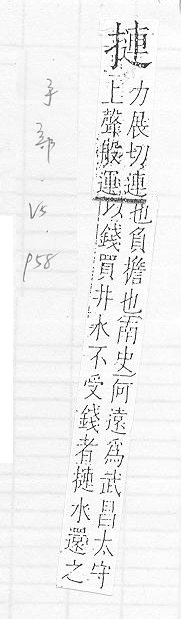 摙
力展切連也負擔也南史何遠為武昌太守
上聲般運以錢買井水不受錢者摙水還之
手部·V5·
P58